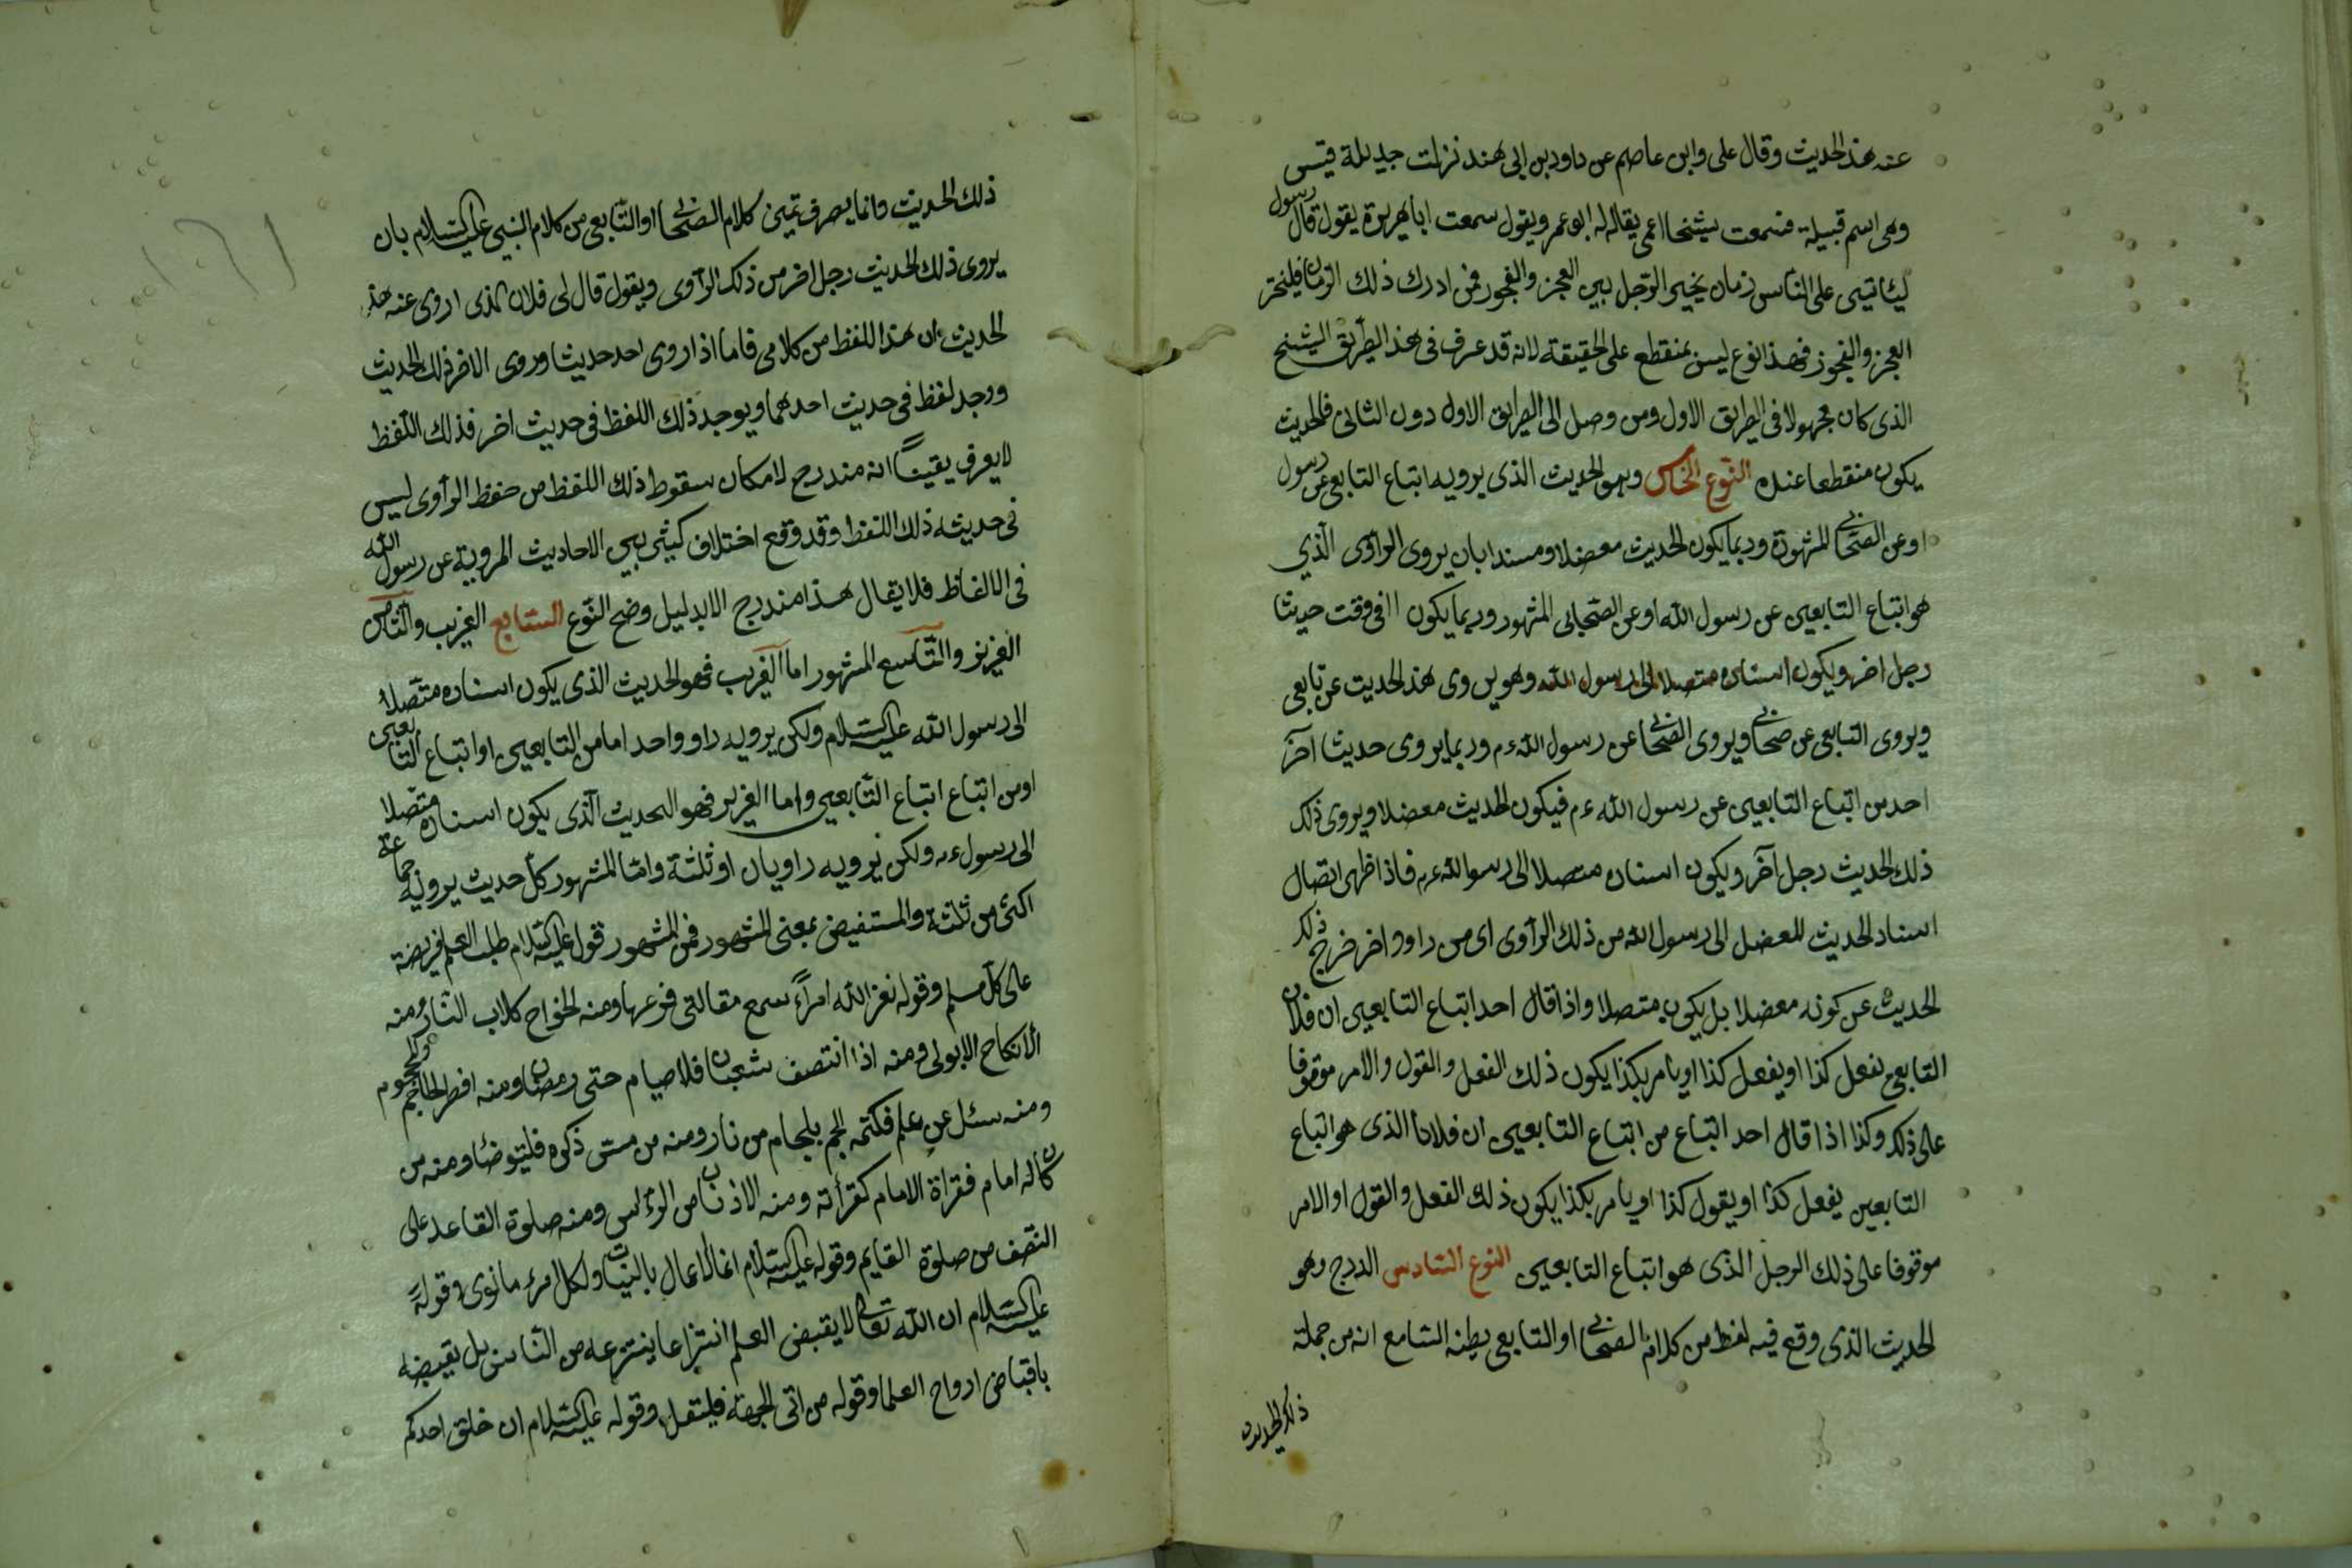 عنه هذ الحديث وقال على وابن عاصم عن داود بن ابى هند نزلت جديلة قيس
وهى اسم قبيلة فسمعت شيخا اعمى يقال له ابو عمر ويقول سمعت ابا هريرة يقول قال رسول
ليئاتيى على الناس زمان يخير الرجل بيى العجز والفجور فمن ادرك ذلك الزمان فليختر
العجز والفجور فهذ النوع ليس بمنقطع على الحقيقة لانه قد عرف فى هذ الطريق الشيخ
الذى كان مجهولا فى الطريق الاول ومن وصل الى الطريق الاول دون الثانى فالحديث
يكون منقطعا عنده النوع الخامس وهو الحديث الذى يرويه اتباع التابعى عن رسول
اوعن الصحابى المشهورة وربما يكون الحديث معضلا ومسندا بان يروى الراوى الذي
هو اتباع التابعيى عن رسول الله اوعن الصحابى المشهور وربما يكون فى وقت حديثا
رجل اخر ويكون اسناده متصلا الى رسول الله وهو يروى هذ الحديث عن تابعى
ويروى التابعى عن صحابى ويروى الصحابى عن رسول الله ءم وربما يروى حديثا آخر
احد من اتباع التابعيى عن رسول الله ءم فيكون الحديث معضلا ويروى ذلك
ذلك الحديث رجل آخر ويكون اسناده متصلا الى رسوالله ءم فاذا ظهر اتصال
اسناد الحديث المعضل الى رسول الله من ذلك الراوى اى من راوو اخر خرج ذلك
الحديث عن كونه معضلا بل يكون متصلا واذا قال احد اتباع التابعيى ان فلان
التابعى نفعل كذا او يفعل كذا او يامر بكذا يكون ذلك الفعل والقول والامر موقوفا
على ذلك وكذا اذا قال احد اتباع من اتباع التابعيى ان فلانا الذى هو اتباع
التابعين يفعل كذا او يقول كذا او يامر بكذا يكون ذلك الفعل والقول او الامر
موقوفا على ذلك الرجل الذى هو اتباع التابعيى النوع السادس المدرج وهو
الحديث الذى وقع فيه لفظ من كلام الصحابى او التابعى يظنه السامع انه من جملة
ذلك الحديث
ذلك الحديث وانما يعرف تميز كلام الصحابى او التابعى من كلام النبى عليه السلام بان
يروى ذلك الحديث رجل اخر من ذلك الراوى ويقول قال لى فلان الذى اروى عنه هذ
الحديث ان هذا اللفظ من كلامى فاما اذا روى احد حديثا وروى الاخر ذلك الحديث
ووجد لفظ فى حديث احدهما ويوجد ذلك اللفظ فى حديث اخر فذلك اللفظ
لا يعرف يقينًا انه مندرج لامكان سقوط ذلك اللفظ من حفظ الراوى ليس
فى حديثه ذلك اللفظ وقد وقع اختلاف كثير بيى الاحاديث المروية عن رسول الله
فى الالفاظ فلا يقال هذا مندرج الا بدليل وضح النوع السابع الغريب والثامن
العزيز والتاسع المشهور اما الغريب فهو الحديث الذى يكون اسناده متصلا
الى رسول الله عليه السلام ولكن يرويه راو واحد اما من التابعيى او اتباع التابعيى
او من اتباع اتباع التابعيى واما العزيز فهو الحديث الذى يكون اسناده متصلا
الى رسول ءم ولكن يرويه راويان او ثلثة واما المشهور كل حديث يرويه جماعة
اكثر من ثلثة والمستفيض بمعنى المشهور فمن المشهور قوله عليه السلام طلب العلم فريضة
على كل مسلم وقوله نضر الله امرأً سمع مقالتى فوعيها ومنه الخوارج كلاب النار ومنه
الانكاح الابولى ومنه اذا انتصف شعبان فلا صيام حتى رمضان ومنه افطر الحاجم والمحجوم
ومنه سئل عن علم فكتمه الجم بلجام من نار ومنه من مس ذكره فليتوضأ ومنه من
كان له امام فقراة الامام كقرأته ومنه الاذنان من الرؤس ومنه صلوة القاعد على
النصف من صلوة القايم وقوله عليه السلام انما الاعمال بالنيات ولكل امرء ما نوى وقوله
عليه السلام ان الله تعالى لا يقبض العلم انتزاعا ينتزعه من الناس بل يقبضه
باقباض ارواح العلما وقوله من اتى الجمعة فليغتسل وقوله عليه السلام ان خلق احدكم